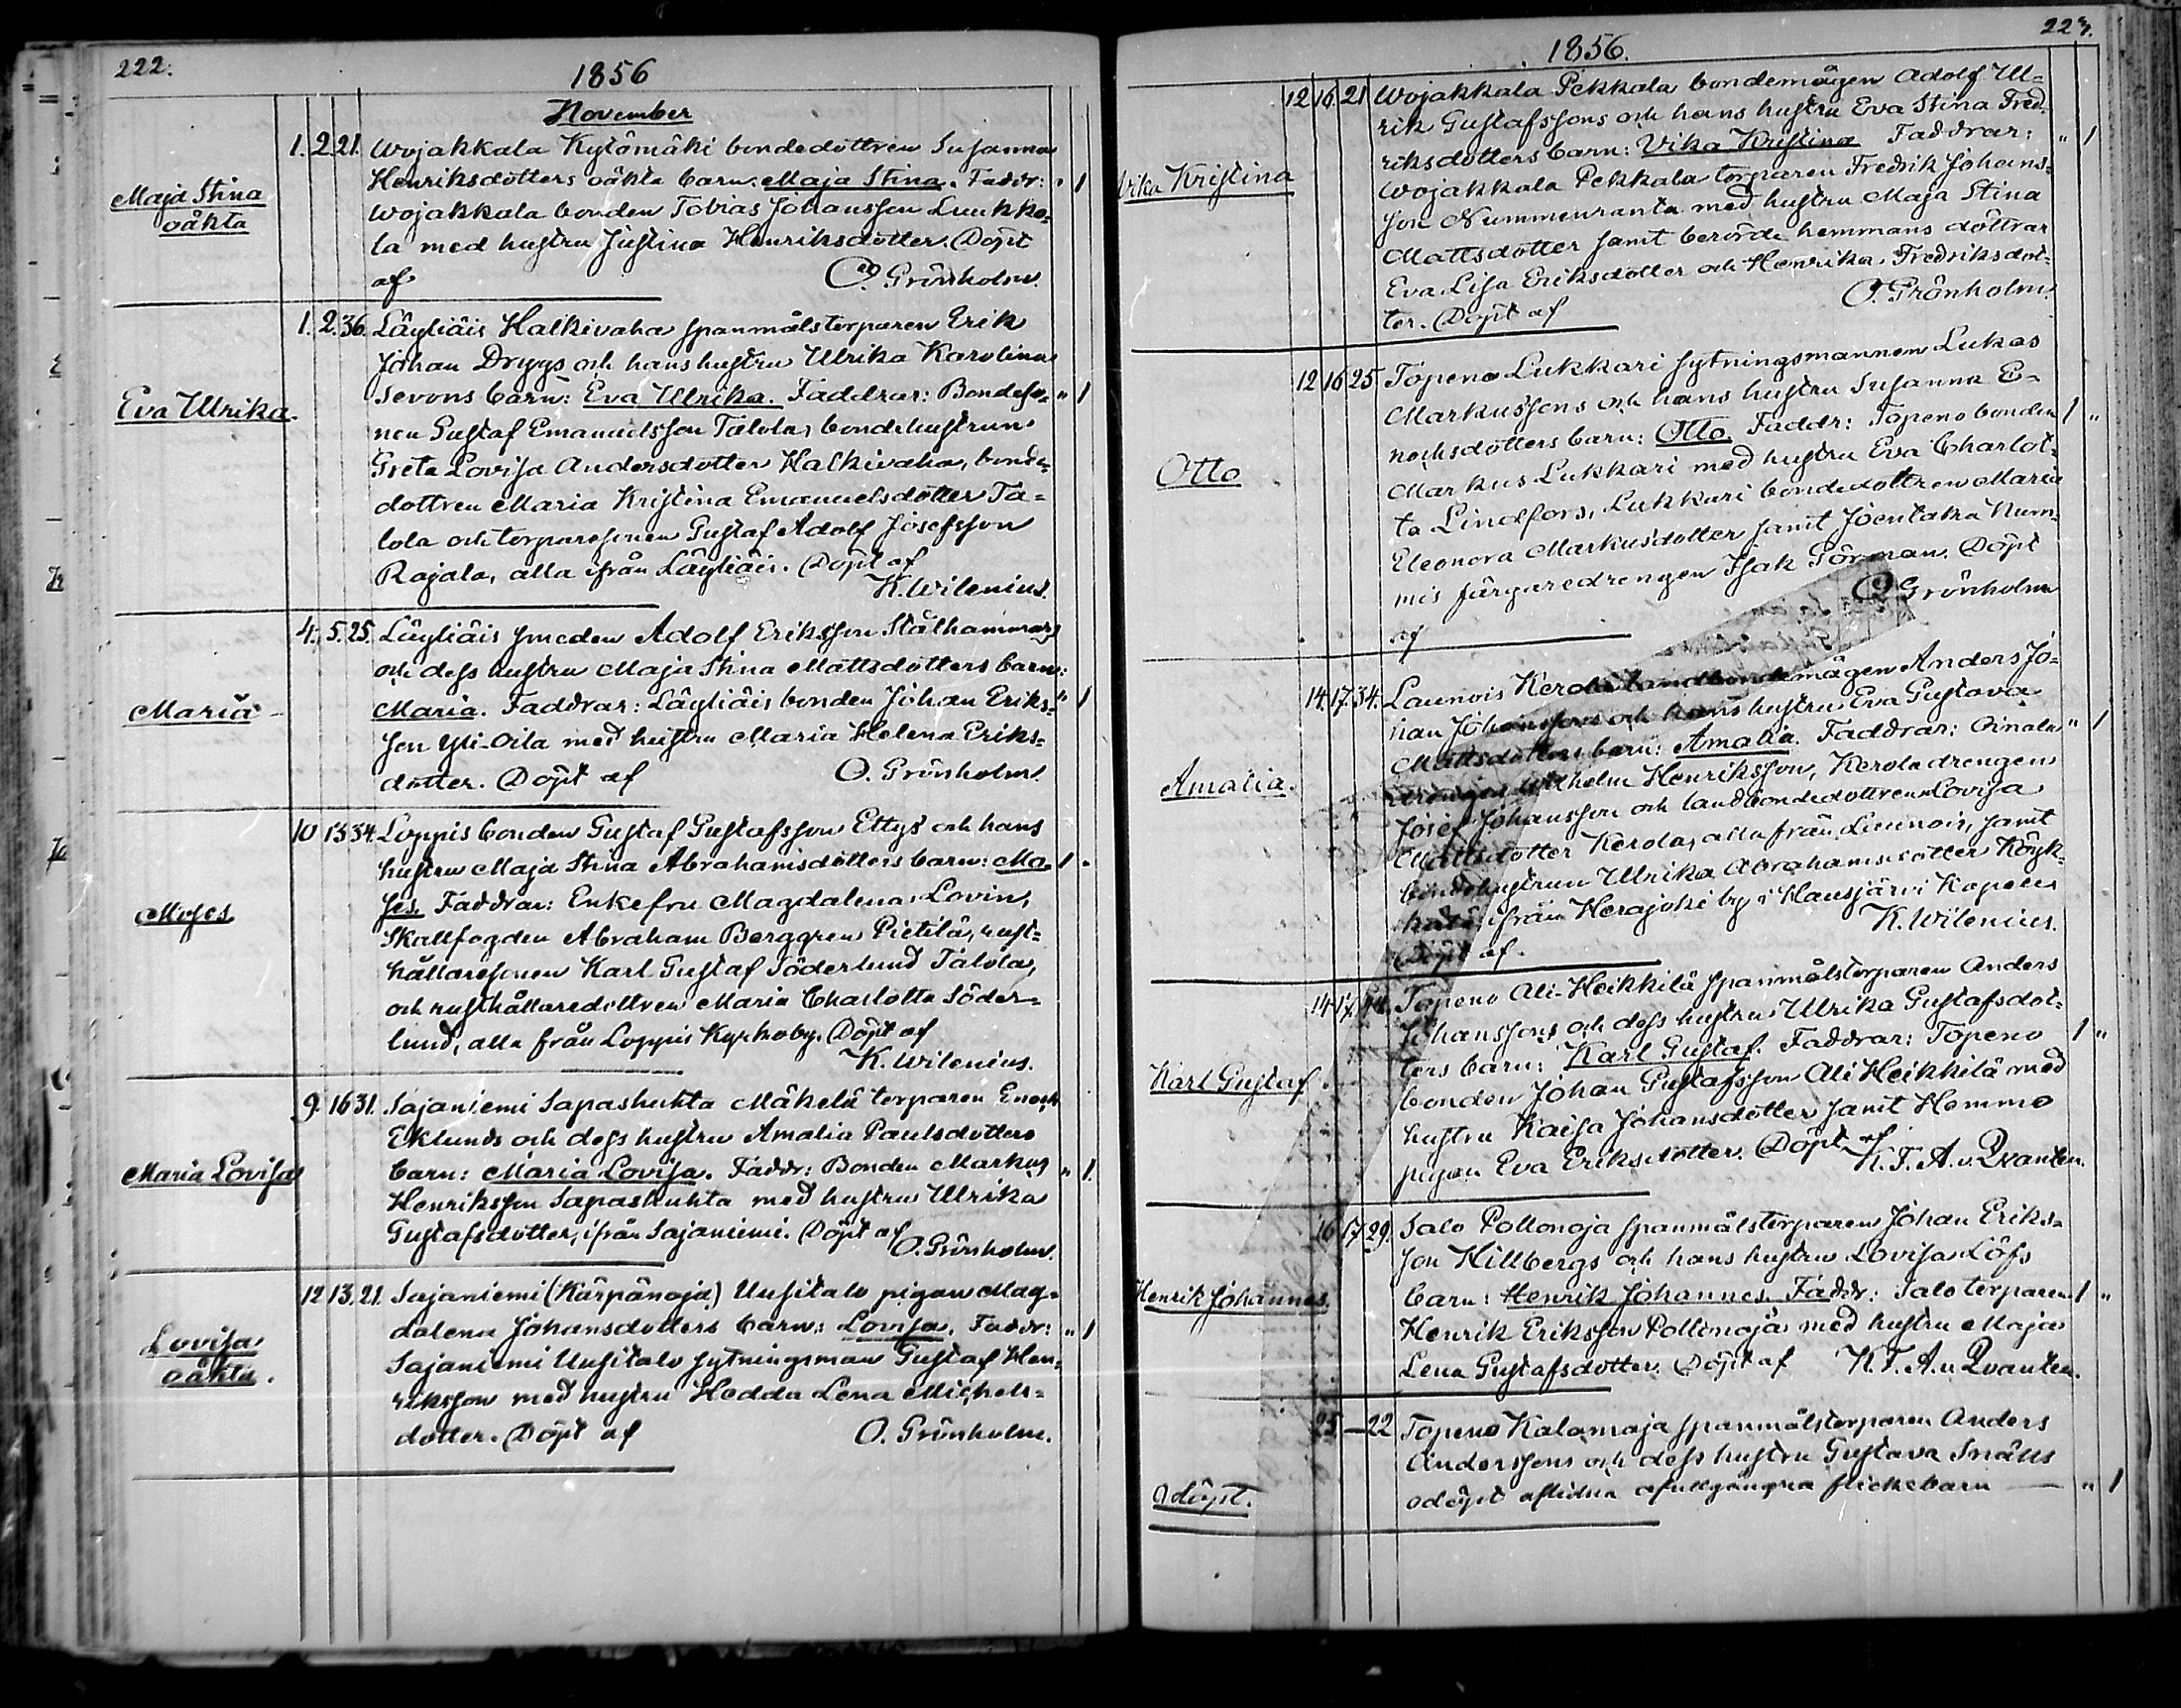 222.
1856
November
Maja Stina
oäkta
1. 2. 21. Wojakkala Kytömäki bondedottren Susanna
Henriksdotters oäkta barn: Maja Stina. Faddr: " 1
Wojakkala bonden Tobias Johansson Luukko-
la med hustru Justina Henriksdotter. Döpt
af O. Grönholm.
Eva Ulrika.
1. 2. 36. Läyliäis Halkivaha spanmålstorparen Erik
Johan Dryygs och hans hustru Ulrika Karolina
Sevons barn: Eva Ulrika. Faddrar: Bondeso- " 1
nen Gustaf Emanuelsson Talola, bondehustrun
Greta Lovisa Andersdotter Halkivaha, bonde-
dottren Maria Kristina Emanuelsdotter Ta-
lola och torparesonen Gustaf Adolf Josefsson
Rajala, alla ifrån Läyliäis. Döpt af
K. Wilenius.
Maria
4. 5. 25. Läyliäis smeden Adolf Eriksson Stålhammars
och dess hustru Maja Stina Mattsdotters barn:
Maria. Faddrar: Läyliäis bonden Johan Eriks- " 1
son Yli-Oila med hustru Maria Helena Eriks-
dotter. Döpt af O. Grönholm.
Moses
10 13 34. Loppis bonden Gustaf Gustafsson Ettys och hans
hustru Maja Stina Abrahamsdotters barn: Mo- 1 "
ses. Faddrar: Enkefru Magdalena Lovin,
Skallfogden Abraham Berggren Pietilä, rust-
hållaresonen Karl Gustaf Söderlund Talola,
och rusthållaredottren Maria Charlotta Söder-
lund, alla från Loppis Kyrkoby. Döpt af
K. Wilenius.
Maria Lovisa
9. 16 31. Sajaniemi Sapashuhta Mäkelä torparen Enoch
Eklunds och dess hustru Amalia Paulsdotters
barn: Maria Lovisa. Faddr: Bonden Markus " 1.
Henriksson Sapashuhta med hustru Ulrika
Gustafsdotter, ifrån Sajaniemi. Döpt af
O. Grönholm.
Lovisa
oäkta.
12 13. 21. Sajaniemi (Kärpänoja) Uusitalo pigan Mag-
dalena Johansdotters barn: Lovisa. Faddr: " 1
Sajaniemi Uusitalo sytningsman Gustaf Hen-
riksson med hustru Hedda Lena Michels-
dotter. Döpt af O. Grönholm.
223.
1856.
Vika Kristina
12 16 21 Wojakkala Pekkala bondemågen Adolf Ul-
rik Gustafssons och hans hustru Eva Stina Fred-
riksdotters barn: Vika Kristina Faddrar: " 1
Wojakkala Pekkala torparen Fredrik Johans-
son Nummenranta med hustru Maja Stina
Mattsdotter samt berörde hemmans döttrar
Eva Lisa Eriksdotter och Henrika Fredriksdot-
ter. Döpt af O. Grönholm.
Otto
12 16 25 Topeno Lukkari sytningsmannen Lukas
Markussons och hans hustru Susanna E-
nochsdotters barn: Otto. Faddr: Topeno bonden 1 "
Markus Lukkari med hustru Eva Charlot-
ta Lindfors, Lukkari bondedottren Maria
Eleonora Markusdotter samt Joentaka Num-
mis färgaredrengen Isak Törman. Döpt
af O. Grönholm
Amalia.
14. 17. 34. Launois Kerola landbondemågen Anders Jo-
han Johanssons och hans hustru Eva Gustava
Mattsdotters barn: Amalia. Faddrar: Oinala " 1
drengen Wilhelm Henriksson, Kerola drengen
Josef Johansson och landbondedottren Lovisa
Mattsdotter Kerola, alla från Launois, samt
bondehustrun Ulrika Abrahamsdotter Köyk-
kälä, ifrån Herajoki by i Hausjärvi Kapell.
Döpt af. K. Wilenius.
Karl Gustaf
14 17. Topeno Ali-Heikkilä spanmålstorparen Anders
Johanssons och dess hustru Ulrika Gustafsdot-
ters barn: Karl Gustaf. Faddrar: Topeno 1 "
bonden Johan Gustafsson Ali Heikkilä med
hustru Kaisa Johansdotter samt Hemmo
pigan Eva Eriksdotter. Döpt af
K. F. A. v. Qvanten.
Henrik Johannes.
16 17 29. Salo Pollonoja spanmålstorparen Johan Eriks-
son Hillbergs och hans hustru Lovisa Löfs
barn: Henrik Johannes. Faddr: Salo torparen 1 "
Henrik Eriksson Pollonoja med hustru Maja
Lena Gustafsdotter. Döpt af K. F. A. v. Qvanten.
Odöpt.
25 — 22 Topeno Kalamaja spanmålstorparen Anders
Anderssons och dess hustru Gustava Snälls
odöpt aflidna ofullgångna flickebarn — " 1